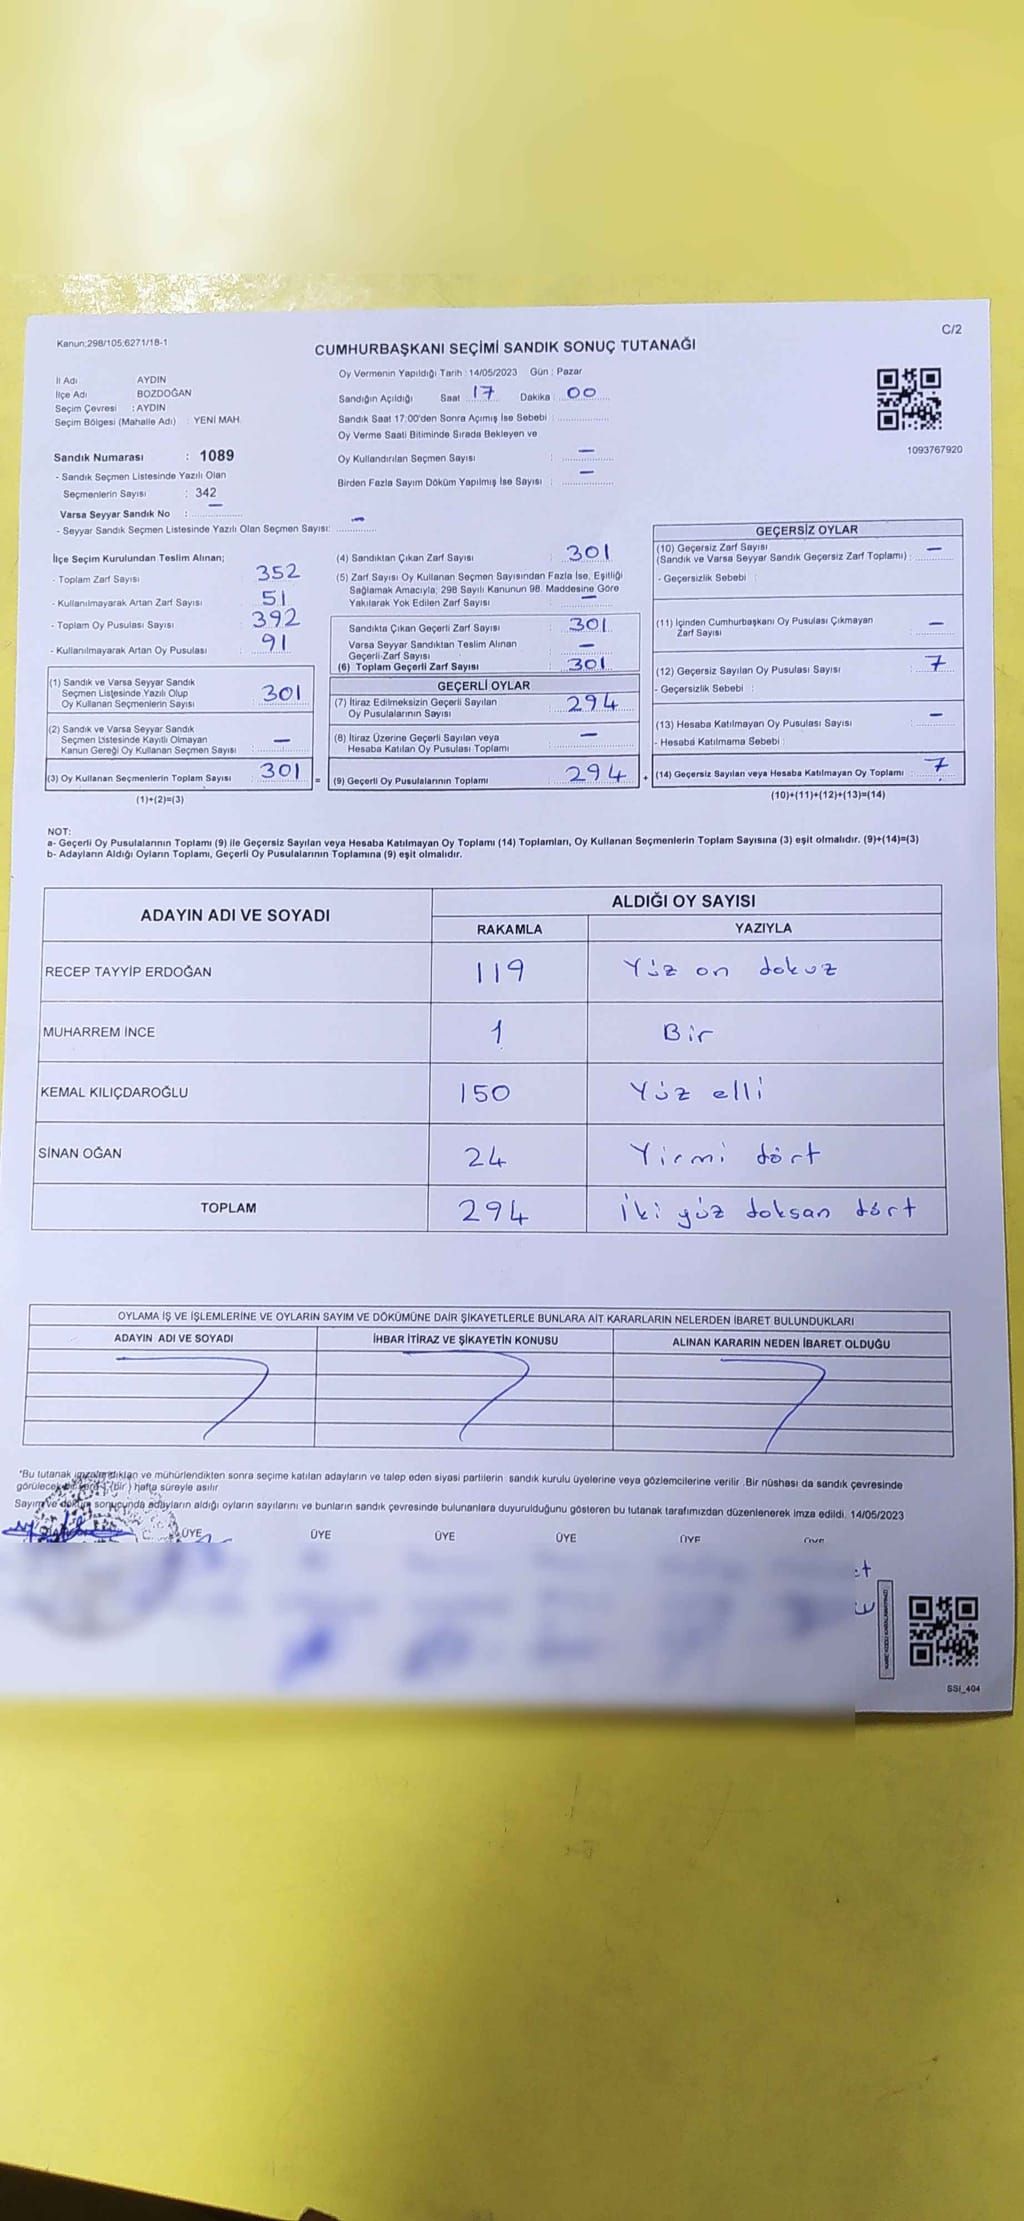 C/2
Kanun;298/105;6271/18-1
CUMHURBAŞKANI SEÇİMİ SANDIK SONUÇ TUTANAĞI
İl Adı AYDIN
İlçe Adı BOZDOĞAN
Seçim Çevresi : AYDIN
Seçim Bölgesi (Mahalle Adı) : YENİ MAH.
Sandık Numarası : 1089
- Sandık Seçmen Listesinde Yazılı Olan
Seçmenlerin Sayısı : 342
Varsa Seyyar Sandık No : —
- Seyyar Sandık Seçmen Listesinde Yazılı Olan Seçmen Sayısı: —
Oy Vermenin Yapıldığı Tarih : 14/05/2023 Gün : Pazar
Sandığın Açıldığı Saat 17 Dakika 00
Sandık Saat 17:00'den Sonra Açımış İse Sebebi :
Oy Verme Saati Bitiminde Sırada Bekleyen ve
Oy Kullandırılan Seçmen Sayısı : —
Birden Fazla Sayım Döküm Yapılmış İse Sayısı : —
1093767920
İlçe Seçim Kurulundan Teslim Alınan;
- Toplam Zarf Sayısı 352
- Kullanılmayarak Artan Zarf Sayısı 51
- Toplam Oy Pusulası Sayısı 392
- Kullanılmayarak Artan Oy Pusulası 91
(1) Sandık ve Varsa Seyyar Sandık
Seçmen Listesinde Yazılı Olup
Oy Kullanan Seçmenlerin Sayısı : 301
(2) Sandık ve Varsa Seyyar Sandık
Seçmen Listesinde Kayıtlı Olmayan
Kanun Gereği Oy Kullanan Seçmen Sayısı : —
(3) Oy Kullanan Seçmenlerin Toplam Sayısı : 301 =
(1)+(2)=(3)
(4) Sandıktan Çıkan Zarf Sayısı : 301
(5) Zarf Sayısı Oy Kullanan Seçmen Sayısından Fazla İse, Eşitliği
Sağlamak Amacıyla; 298 Sayılı Kanunun 98. Maddesine Göre
Yakılarak Yok Edilen Zarf Sayısı : —
Sandıkta Çıkan Geçerli Zarf Sayısı : 301
Varsa Seyyar Sandıktan Teslim Alınan
Geçerli Zarf Sayısı : —
(6) Toplam Geçerli Zarf Sayısı : 301
GEÇERLİ OYLAR
(7) İtiraz Edilmeksizin Geçerli Sayılan
Oy Pusulalarının Sayısı : 294
(8) İtiraz Üzerine Geçerli Sayılan veya
Hesaba Katılan Oy Pusulası Toplamı : —
(9) Geçerli Oy Pusulalarının Toplamı : 294 +
GEÇERSİZ OYLAR
(10) Geçersiz Zarf Sayısı
(Sandık ve Varsa Seyyar Sandık Geçersiz Zarf Toplamı) : —
- Geçersizlik Sebebi :
(11) İçinden Cumhurbaşkanı Oy Pusulası Çıkmayan
Zarf Sayısı : —
(12) Geçersiz Sayılan Oy Pusulası Sayısı : 7
- Geçersizlik Sebebi :
(13) Hesaba Katılmayan Oy Pusulası Sayısı : —
- Hesaba Katılmama Sebebi :
(14) Geçersiz Sayılan veya Hesaba Katılmayan Oy Toplamı : 7
(10)+(11)+(12)+(13)=(14)
NOT:
a- Geçerli Oy Pusulalarının Toplamı (9) ile Geçersiz Sayılan veya Hesaba Katılmayan Oy Toplamı (14) Toplamları, Oy Kullanan Seçmenlerin Toplam Sayısına (3) eşit olmalıdır. (9)+(14)=(3)
b- Adayların Aldığı Oyların Toplamı, Geçerli Oy Pusulalarının Toplamına (9) eşit olmalıdır.
ADAYIN ADI VE SOYADI
ALDIĞI OY SAYISI
RAKAMLA YAZIYLA
RECEP TAYYİP ERDOĞAN 119 Yüz on dokuz
MUHARREM İNCE 1 Bir
KEMAL KILIÇDAROĞLU 150 Yüz elli
SİNAN OĞAN 24 Yirmi dört
TOPLAM 294 İki yüz doksan dört
OYLAMA İŞ VE İŞLEMLERİNE VE OYLARIN SAYIM VE DÖKÜMÜNE DAİR ŞİKAYETLERLE BUNLARA AİT KARARLARIN NELERDEN İBARET BULUNDUKLARI
ADAYIN ADI VE SOYADI İHBAR İTİRAZ VE ŞİKAYETİN KONUSU ALINAN KARARIN NEDEN İBARET OLDUĞU
*Bu tutanak imzalandıktan ve mühürlendikten sonra seçime katılan adayların ve talep eden siyasi partilerin sandık kurulu üyelerine veya gözlemcilerine verilir. Bir nüshası da sandık çevresinde
(bir) hafta süreyle asılır
Sayım ve döküm sonucunda adayların aldığı oyların sayılarını ve bunların sandık çevresinde bulunanlara duyurulduğunu gösteren bu tutanak tarafımızdan düzenlenerek imza edildi. 14/05/2023
ÜYE ÜYE ÜYE ÜYE ÜYE ÜYE
SSI_404